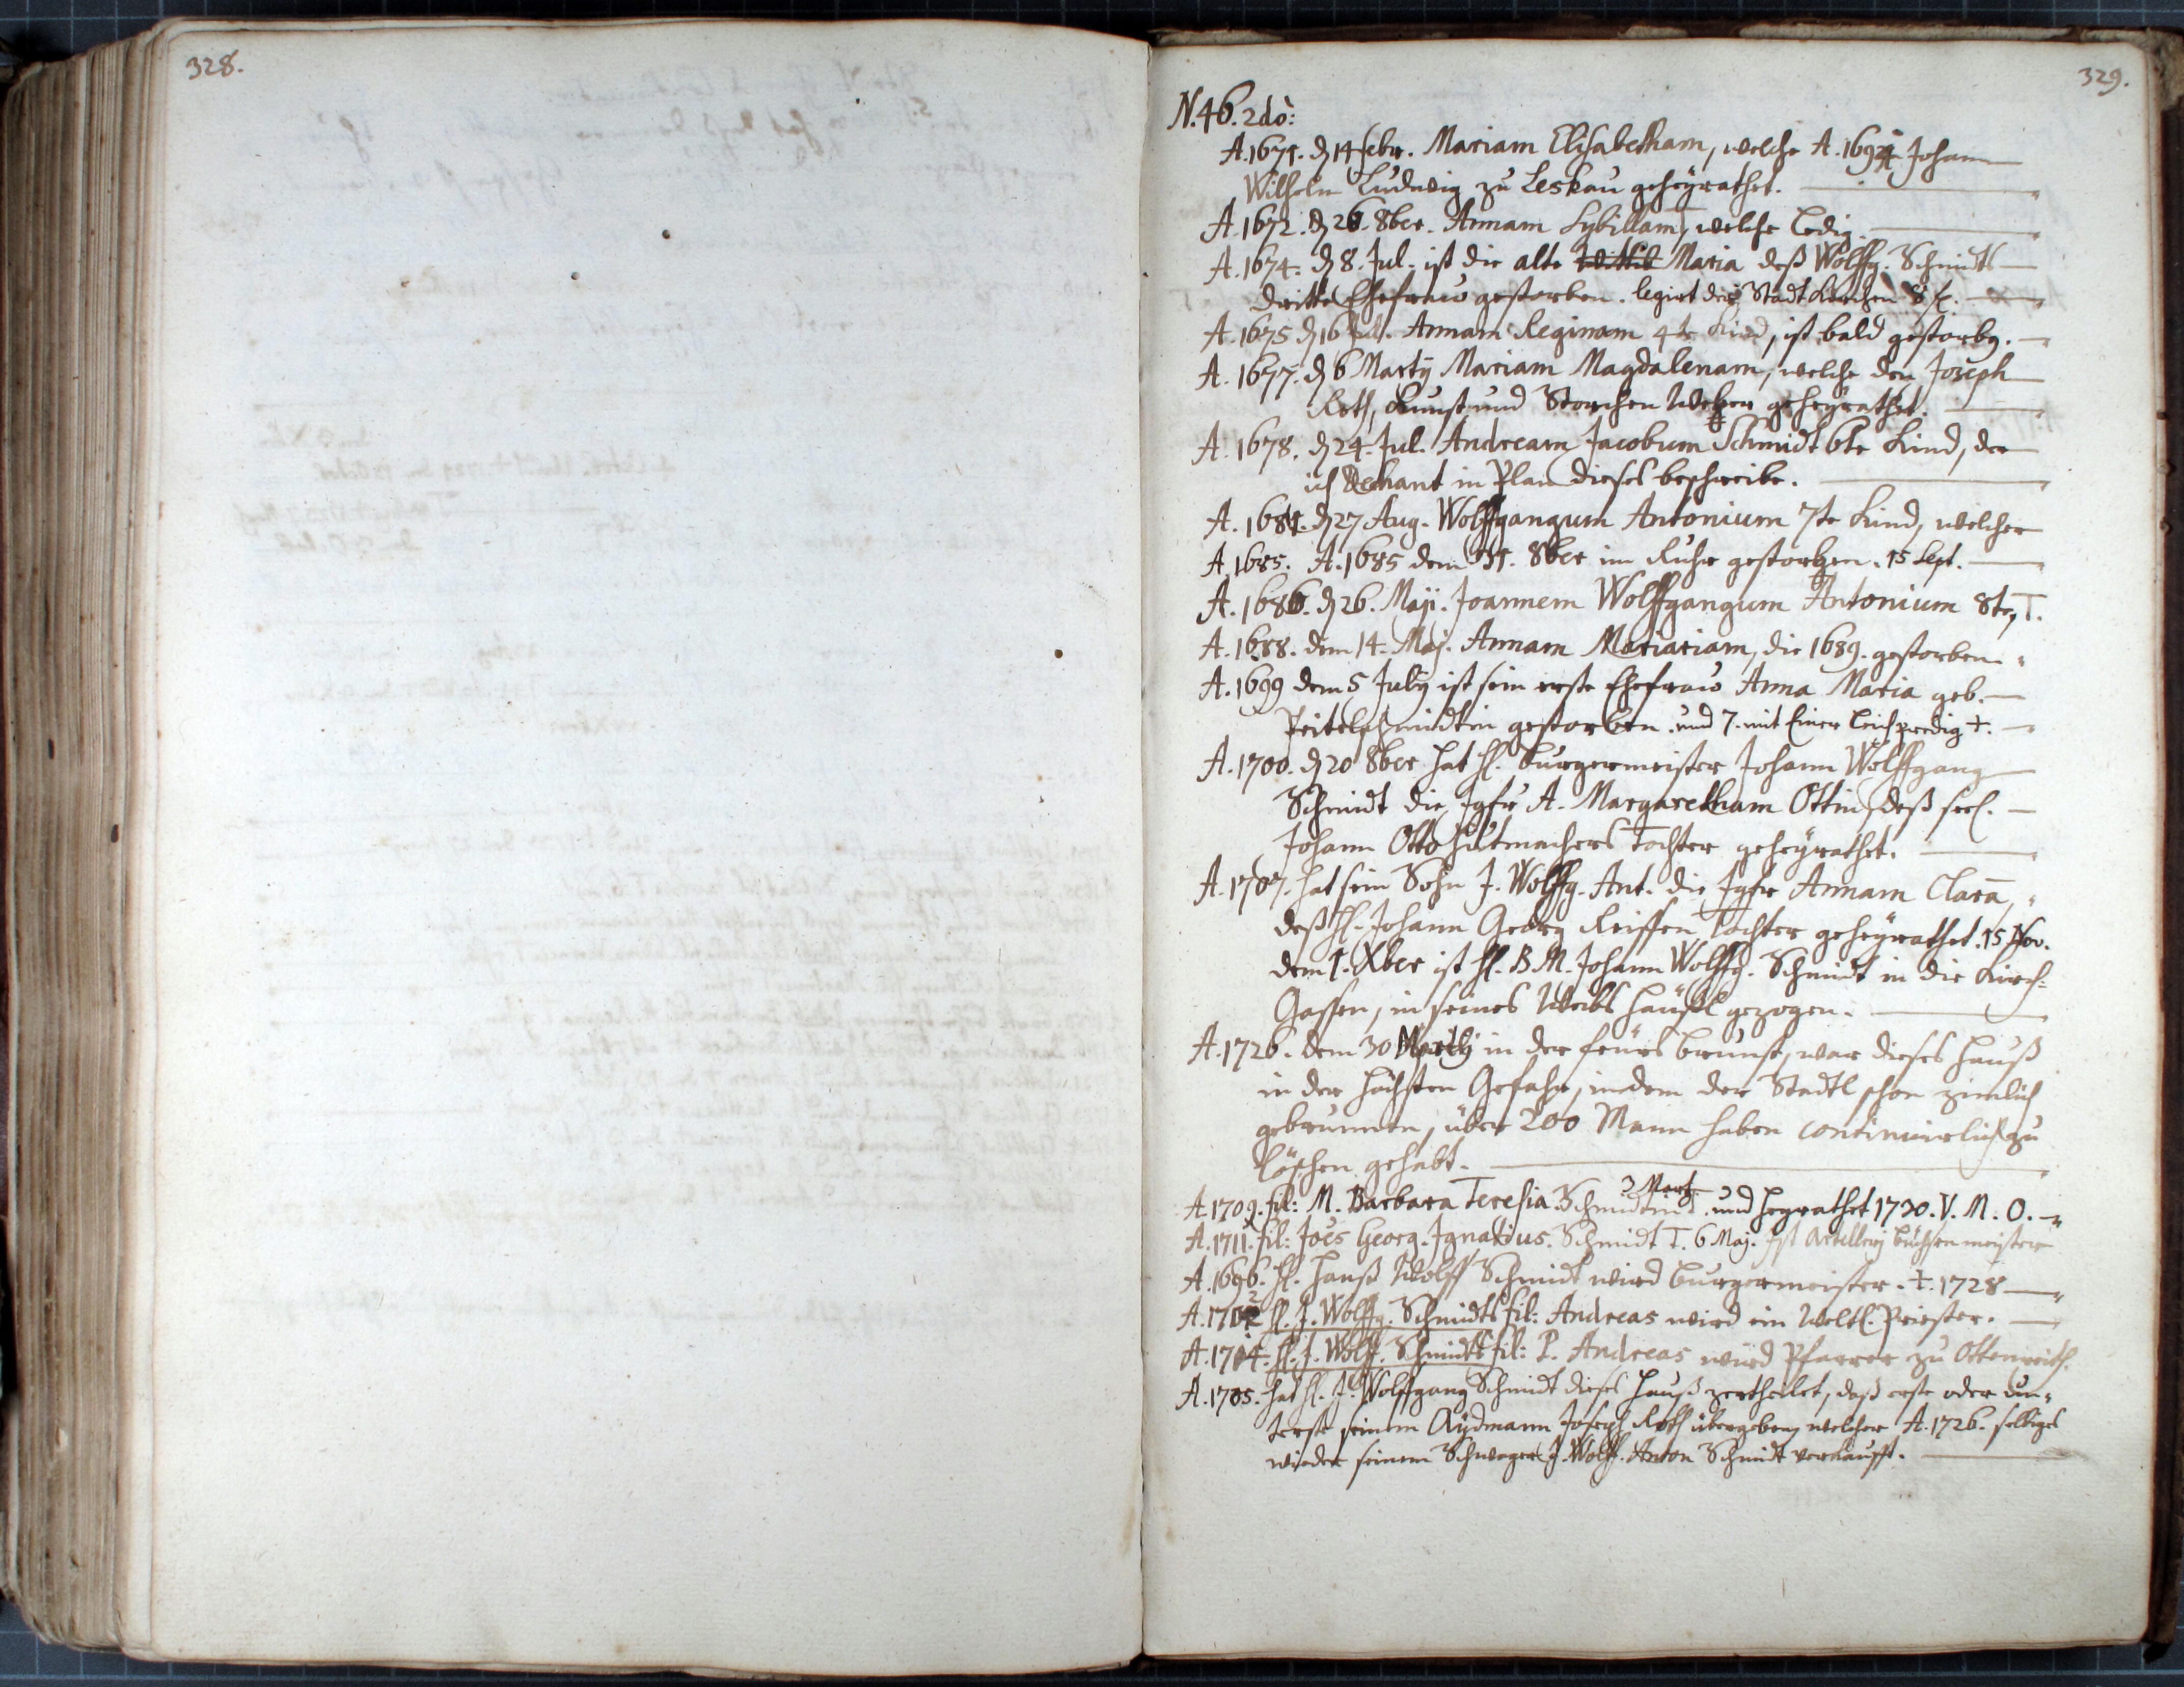 328.
329.
N.46. 2dò:
A.1671. d 14 febr. Mariam Elisabetham, welche A. 1694 Johann
Wilhelm Ludwig zu Leskau geheÿrathet.
A.1672. d 26. 8ber. Annam Sybillam, welche ledig.
A.1674. d 8. Jul. ist die alte Wittib Maria deß Wolffg. Schmidts
dritte Ehefraw gestorben. legirt der Stadt Kirchen 8 fl.
A.1675 d 16 Annam Reginam 4te Kind, ist bald gestorbg.
A. 1677. d 6 Martÿ Mariam Magdalenam, welche den Joseph
Roth, Kunst und Storchen Weber geheÿrathet.
A. 1678. d 24. Jul. Andream Jacobum Schmidt 6te Kind, der
ich Dechant in Plan dieses beschreibe.
A. 1681. d 27 Aug. Wolffgangum Antonium 7te Kind, welcher
A.1685. A.1685 dem 31. 8ber im Ruhr gestorben. 15 Sept.
A. 1686. d 26. Maji. Joannem Wolffgangum Antonium 8te, T.
A. 1688. dem 14. Maj. Annam Mariariam, die 1689. gestorben.
A. 1699 dem 5 Julÿ ist sein erste Ehefraw Anna Maria geb.
Peitelschmidtin gestorben. und 7. mit Einer Leichpredig +.
A.1700. d 20 8ber hat H. Burgermeister Johann Wolffgang
Schmidt die Jgfr A. Margaretham Ottin, deß seel.
Johann Otto Hutmachers Tochter geheÿrathet.
A.1707. hat sein Sohn J. Wolffg. Ant. die Jgfr Annam Clara,
deß H. Johann Georg Reissen Tochter geheÿrathet. 15 Nov.
dem 1. Xber ist H. B.M. Johann Wolffg. Schmidt in die Kirch=
Gassen, in seines Weibs Häußl gezogen.
A.1726. dem 30 Martÿ in der feürs brunst, war dieses Hauß
in der höchsten Gefahr, indem der Stadtl schon zimlich
gebrunnen, über 200 Mann haben continuirlich zu
löschen gehabt.
3 Mart.
A.1709. fil: M. Barbara Teresia Schmidtin und heyrathet 1730. V. M. O.
A.1711. fil: Joēs Georg. Ignatius. Schmidt T. 6 Maj. ist Artillerj büchsenmeister
A.1696. H. Hanß Wolff Schmidt wird Burgermeister. +. 1728
A.1702 H. J. Wolffg. Schmidts fil: Andreas wird ein Weltl. Priester.
A.1704. H. J. Wolff. Schmidts fil: P. Andreas würd Pfarrer zu Ottenreith.
A.1705. hat H. J. Wolffgang Schmidt dieses Hauß zertheilet, daß erste oder un=
terste seinem Aÿdmann Joseph Roth übergeben, welcher A.1726. selbiges
wieder seinem Schwager J. Wolff. Anton Schmidt verkaufft.